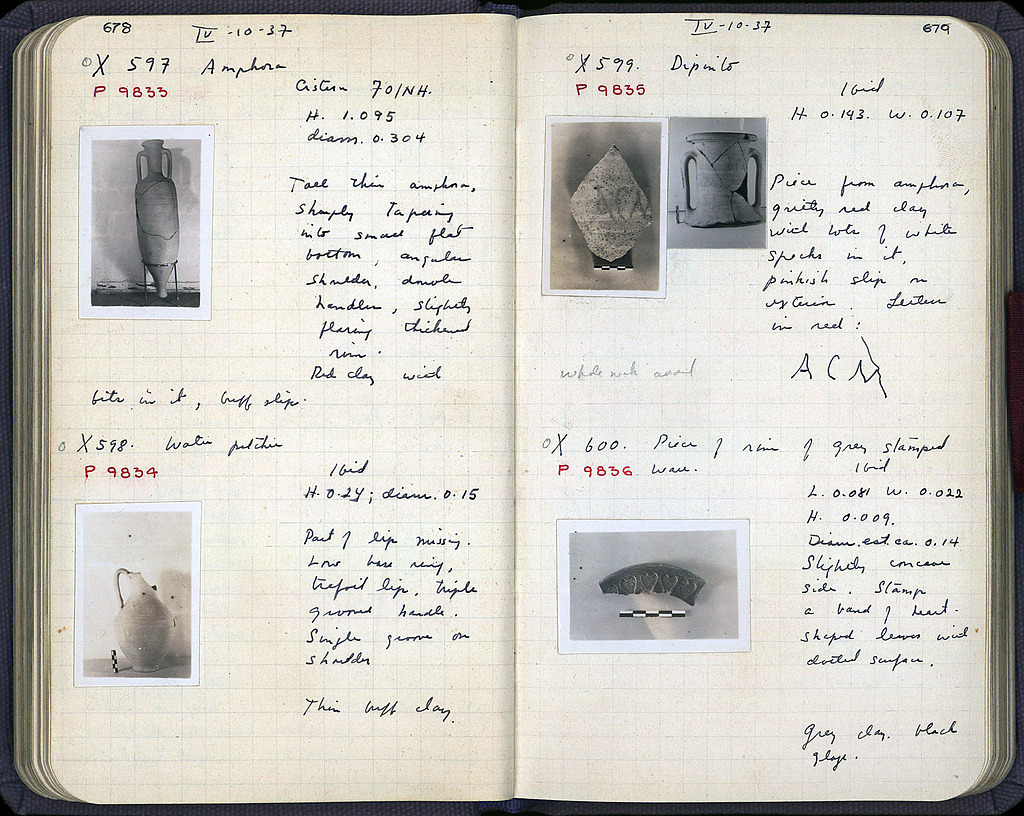 678
IV -10-37
X 597 Amphora
P 9833
Cistern 70/NH.
H. 1.095
diam. 0.304
Tall thin amphora,
sharply tapering
into small flat
bottom, angular
shoulder, double
handles, slightly
flaring thickened
rim.
Red clay with
bits in it, buff slip.
X 598. Water pitcher
P 9834
Ibid
H. 0.24; diam. 0.15
Part of lip missing.
Low base ring,
trefoil lip, triple
grooved handle.
Single groove on
shoulder
Thin buff clay.
IV -10-37
679
X 599. Dipinto
P 9835
Ibid
H. 0.143. W. 0.107
Piece from amphora,
gritty red clay
with lots of white
specks in it,
pinkish slip on
exterior. Letters
in red:
A C
whole
X 600. Piece of rim of grey stamped
P 9836 ware.
Ibid
L. 0.081 W. 0.022
H. 0.009.
Diam. est. ca. 0.14
Slightly concave
side. Stamp
a band of heart-
shaped leaves with
dotted surface.
Grey clay. black
glaze.